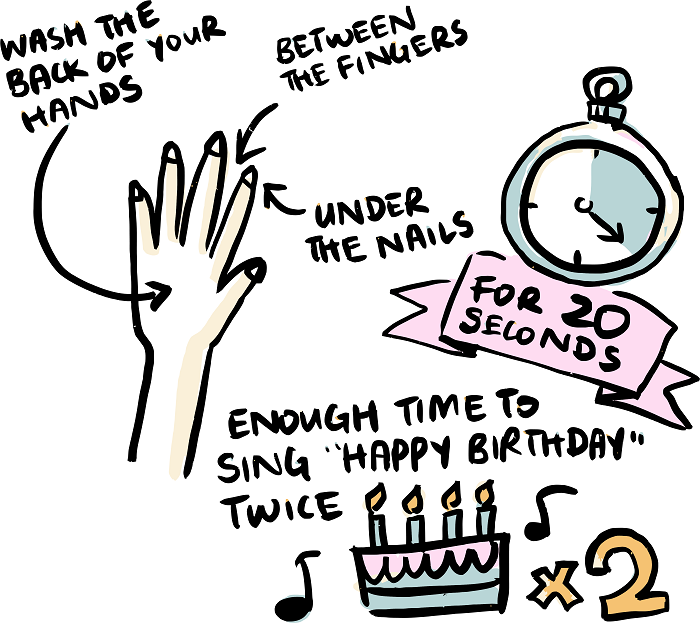 WASH THE
BACK OF YOUR
HANDS
BETWEEN
THE FINGERS
UNDER
THE NAILS
FOR 20
SECONDS
ENOUGH TIME TO
SING "HAPPY BIRTHDAY"
TWICE
x2